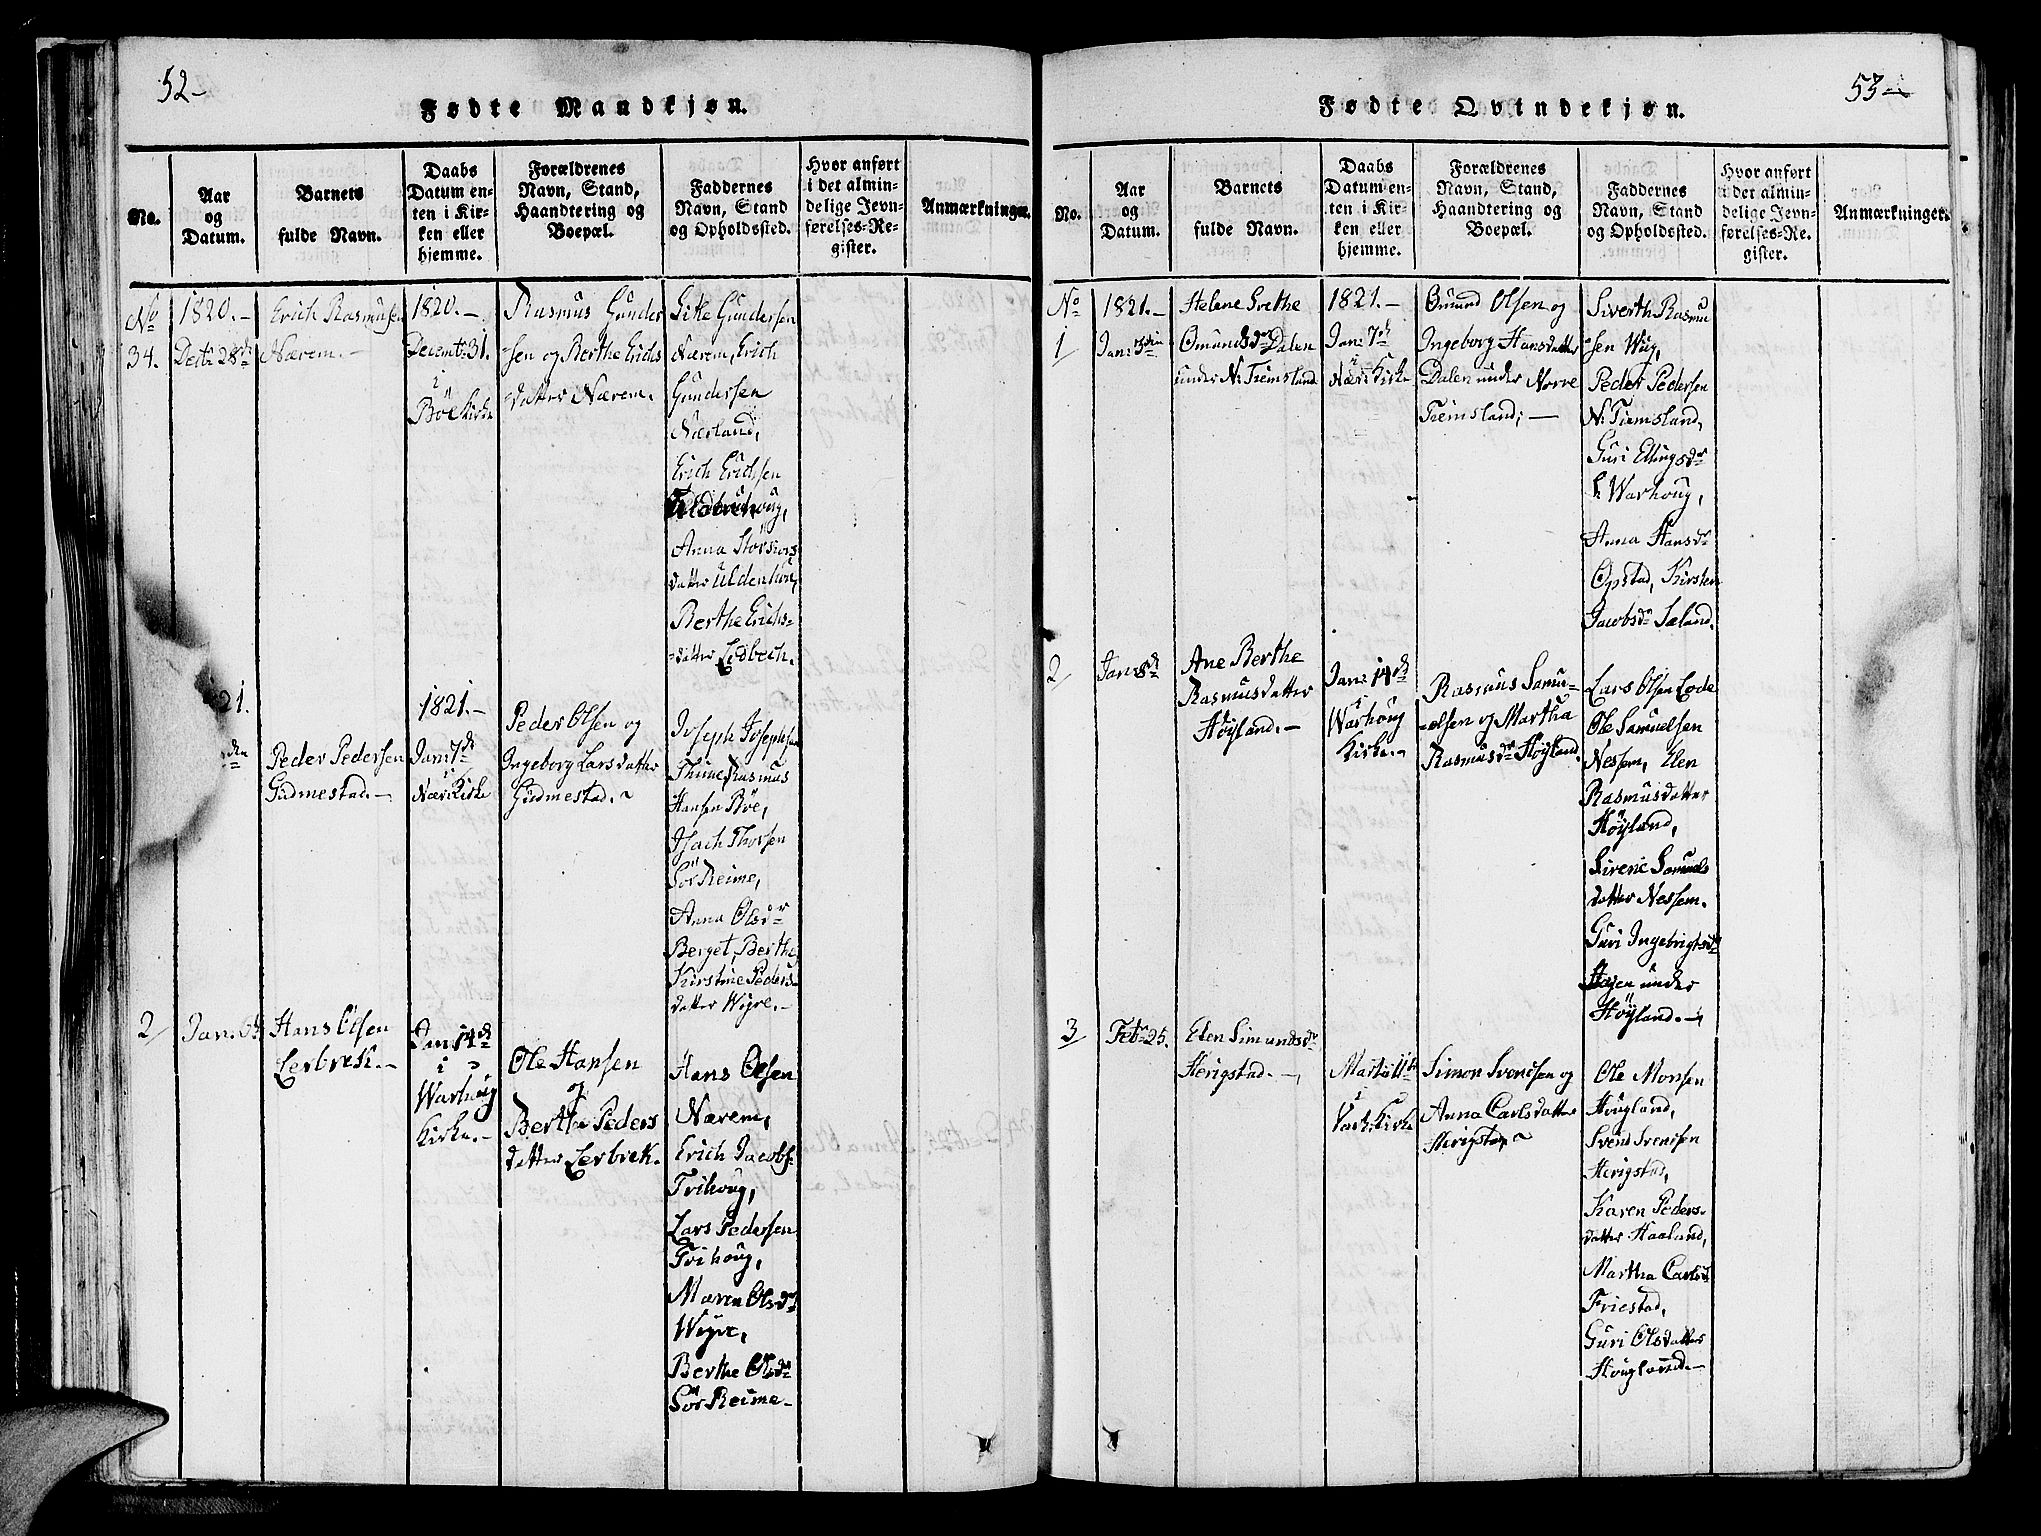 52-
Fødte Mandkjøn.
No.
Aar
og
Datum.
Barnets
fulde Navn.
Daabs
Datum en-
ten i Kir-
ken eller
hjemme.
Forældrenes
Navn, Stand,
Haandtering og
Boepæl.
Faddernes
Navn, Stand
og Opholdssted.
Hvor anført
i det almin-
delige Jevn-
førelses-Re-
gister.
Anmærkninger.
No
34.
1820.-
Decbr 28de
Erich Rasmusen
Nærem.-
1820.-
Decembr 31.
i
Böe Kirke
Rasmus Gunder
sen og Berthe Erichs
datter Nærem.
Eike Gundersen
Nærem, Erich
Gundersen
Nærland,
Erich Erichsen
Anna
datter
Berthe Erichs-
datter Lodbech.
21.
den
Peder Pedersen
Gudmestad.-
1821.-
Jan: 7de
i
Nær: Kirke
Peder Olsen og
Ingeborg Larsdatter
Gudmestad.
Joseph Josephsen
Thime, Rasmus
Hansen Böe,
Isach Thorsen
Sör Reime,
Anna Olsdr
Berget, Berthe
Kirstine Peders-
datter Wigre.-
2
Jan. 6te
Hans Olsen
Lerbrek.-
Jan: 14de
i
Warhoug
Kirke.-
Ole Hansen
og
Berthe Peders
datter Lerbrek.
Hans Olsen
Nærem,
Erich Jacobs.
Trihoug,
Lars Pedersen
Trihoug,
Maren Olsdr
Wigre,
Berthe Olsdr
Sör Reime-
53-
Fødte Qvindekjøn.
No.
Aar
og
Datum.
Barnets
fulde Navn.
Daabs
Datum en-
ten i Kir-
ken eller
hjemme.
Forældrenes
Navn, Stand,
Haandtering og
Boepæl.
Faddernes
Navn, Stand
og Opholdssted.
Hvor anført
i det almin-
delige Jevn-
førelses-Re-
gister.
Anmærkninger.
No
1
1821.-
Jan: 3die
Helene Grethe
Omundsdr Dalen
under N: Tiemsland
1821.-
Jan: 7de
i
Nær: Kirke
Omund Olsen og
Ingeborg Hansdatter
Dalen under Norre
Tiemsland;-
Siverth Rasmu
sen Wug,
Peder Pedersen
N: Tiemsland,
Guri Ellingsdr
Warhoug,
Anna Hansdr
Opstad, Kirsten
Jacobsdr Sæland.
2
Jan: 8de
Ane Berthe
Rasmusdatter
Höyland.-
Jan: 14de
i
Warhoug
Kirke.-
Rasmus Samu-
elsen og Martha
Rasmusdr Höyland.
Lars Olsen Lode
Ole Samuelsen
Nessem, Elen
Rasmusdatter
Höyland,
Sirene Samuels
datter Nessem.
Guri Ingebrigtsdr
Hagen under
Höyland.-
3
Febr 25.
Elen Simundsdr
Herigstad.-
Marts 11te
i
Kirke
Simon Svendsen og
Anna Carlsdatter
Herigstad
Ole Monsen
Hougland,
Svend Svendsen
Herigstad,
Karen Peders-
datter Haaland,
Martha Carlsdr
Friestad,
Guri Olsdatter
Hougland.-